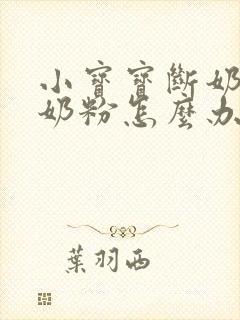 小寶寶斷奶
奶粉怎麼办
葉羽西